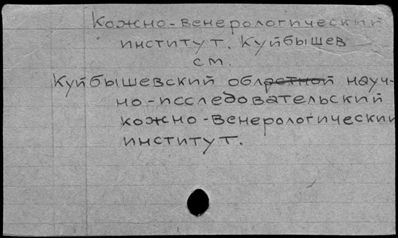 Кожно-венерологический
институт. Куйбышев
см.
Куйбышевский областной науч-
но-исследовательский
кожно-венерологический
институт.